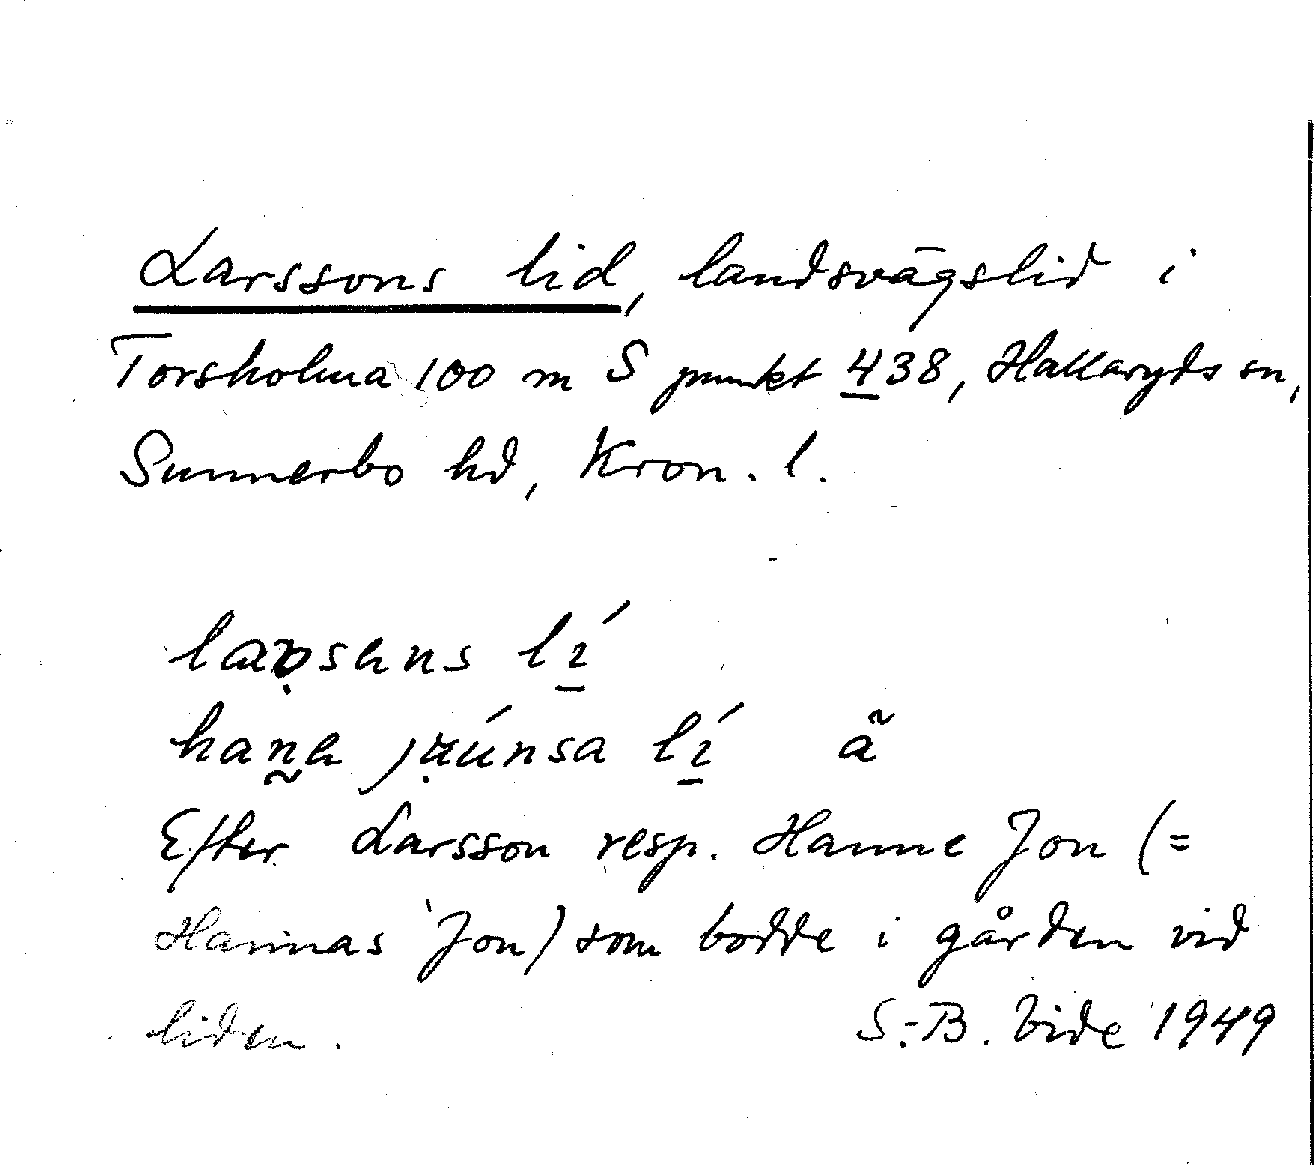 Larssons lid, landsvägslid i
Torsholma 100 m S punkt 438, Hallaryds sn,
Sunnerbo hd, Kron. l.
lí
lí ã
Efter Larsson resp. Hanne Jon (=
Hannas Jon) som bodde i gården vid
liden. S.-B. Vide 1949